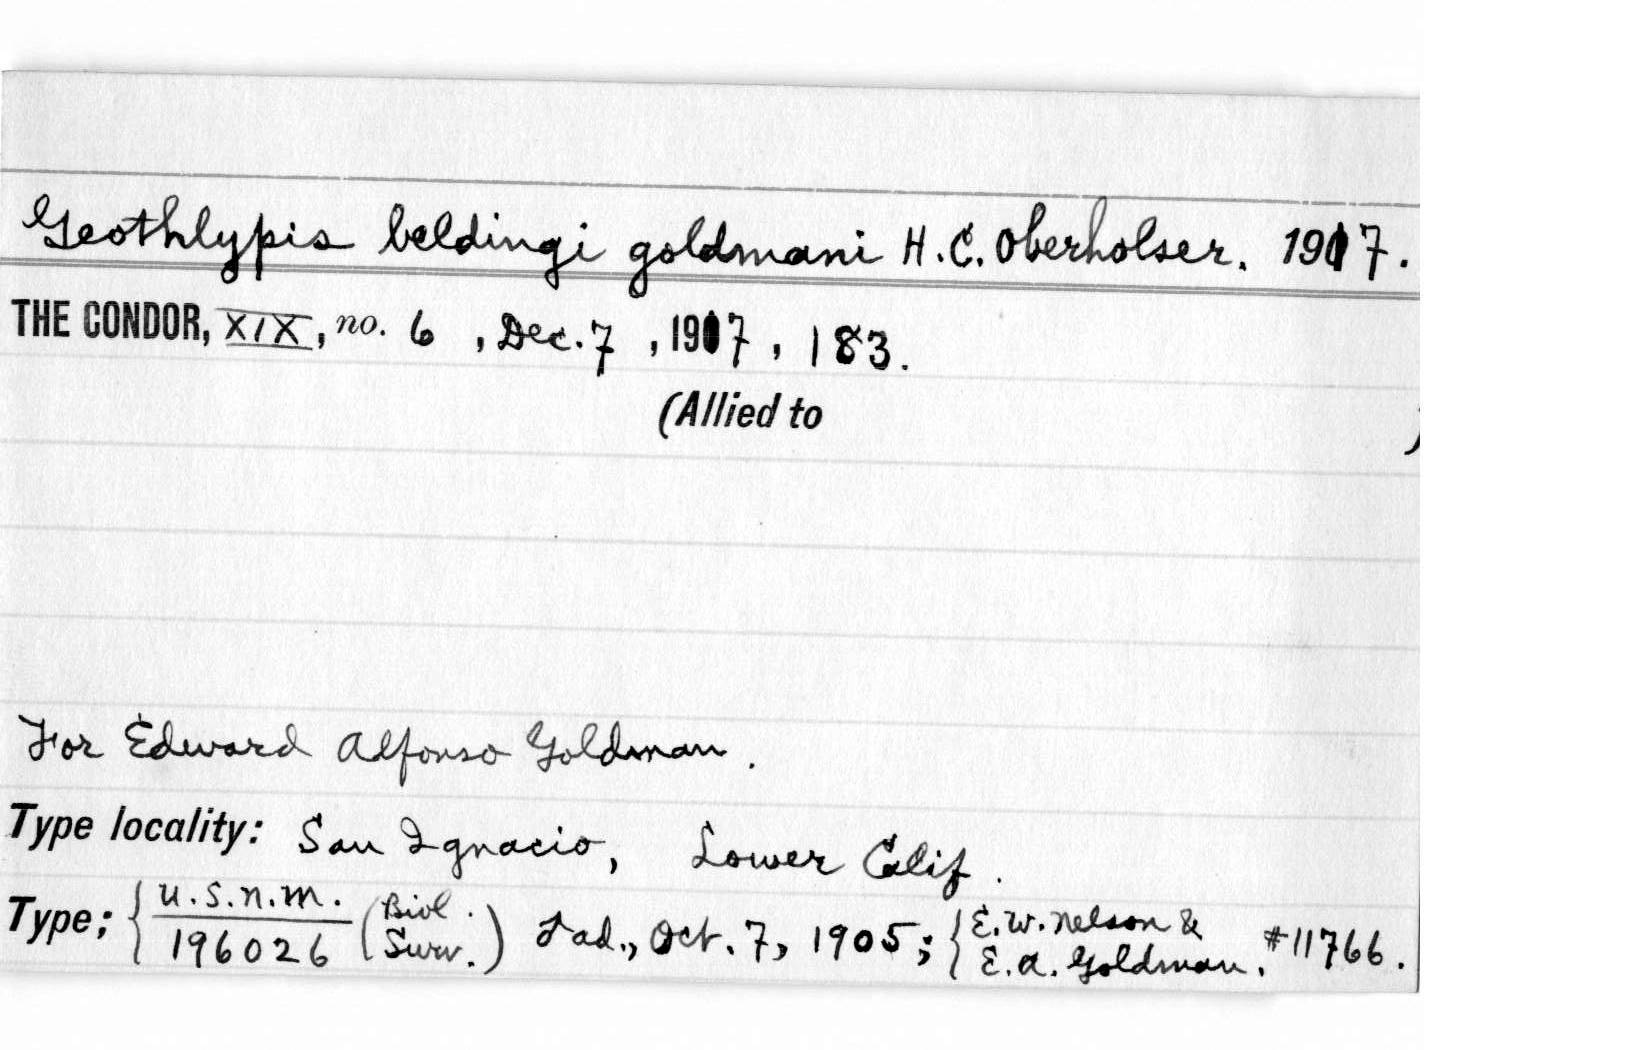 Geothlypis beldingi goldmani H.C. Oberholser. 1917.
THE CONDOR, XIX, no. 6, Dec. 7, 1917, 183.
(Allied to )
For Edward Alfonso Goldman.
Type locality: San Ignacio, Lower Calif.
Type; { U.S.N.M. 196026 (Biol. Surv.) Fad., Oct. 7, 1905; { E.W. Nelson & E.A. Goldman. #11766.